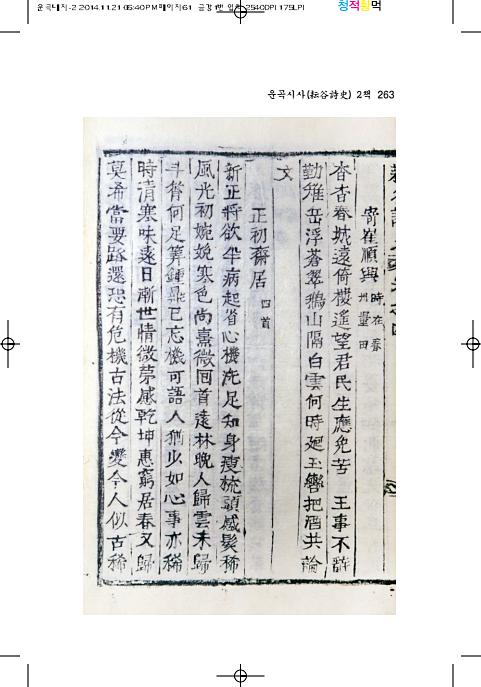 운곡시사(耘谷詩史) 2책 263
寄崔順興 時在春州量田
杳杳春城遠倚樓遙望君民生應免苦 王事不辭
勤雉岳浮蒼翠鵝山隔白雲何時廻玉轡把酒共論
文
正初齋居 四首
新正將欲半病起省心機洗足知身瘦梳頭感髮稀
風光初婉娩寒色尚熹微回首遠林晚人歸雲未歸
斗筲何足筭鍾鼎已忘機可語人猶少如心事亦稀
時清寒味遠日漸世情微荷感乾坤惠窮居春又歸
莫希當要路還恐有危機古法從今變今人似古稀